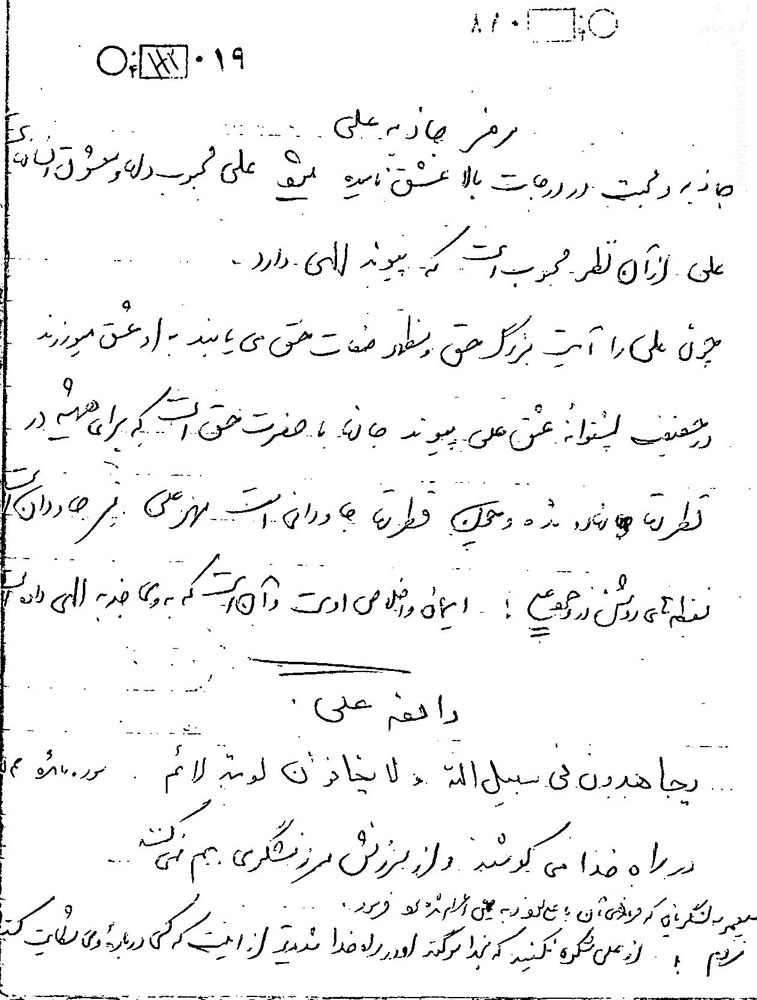 ۸/۰
۰۱۹
رمز جاذبه علی
جاذبه و محبت در درجات بالا عشق نامیده میشود علی محبوب دلها و معشوق انسانهاست
علی از آن نظر محبوب است که پیوند الهی دارد.
چون علی را آیت بزرگ حق و مظهر صفات حق می یابند به او عشق میورزند
در حقیقت پشتوانه عشق علی پیوند جانها با حضرت حق است که برای همیشه در
فطرتها نهاده شده و چون فطرتها جاودانی است مهر علی نیز جاودان است
نقطه های روشن در وجود علی: ایمان و اخلاص اوست و آن است که به وی جذبه الهی داده است
دافعه علی
یجاهدون فی سبیل الله و لا یخافون لومة لائم. سوره مائده
در راه خدا می کوشند و از سرزنش سرزنشگری بیم نمی کنند
پیغمبر به لشگریانی که فرماندهی آن با علی بود و به یمن اعزام شده بود فرمود.
مردم! از علی شکوه نکنید که بخدا سوگند او در راه خدا شدیدتر از اینست که کسی درباره وی شکایت کند
navideshahed.com
نوید شاهد